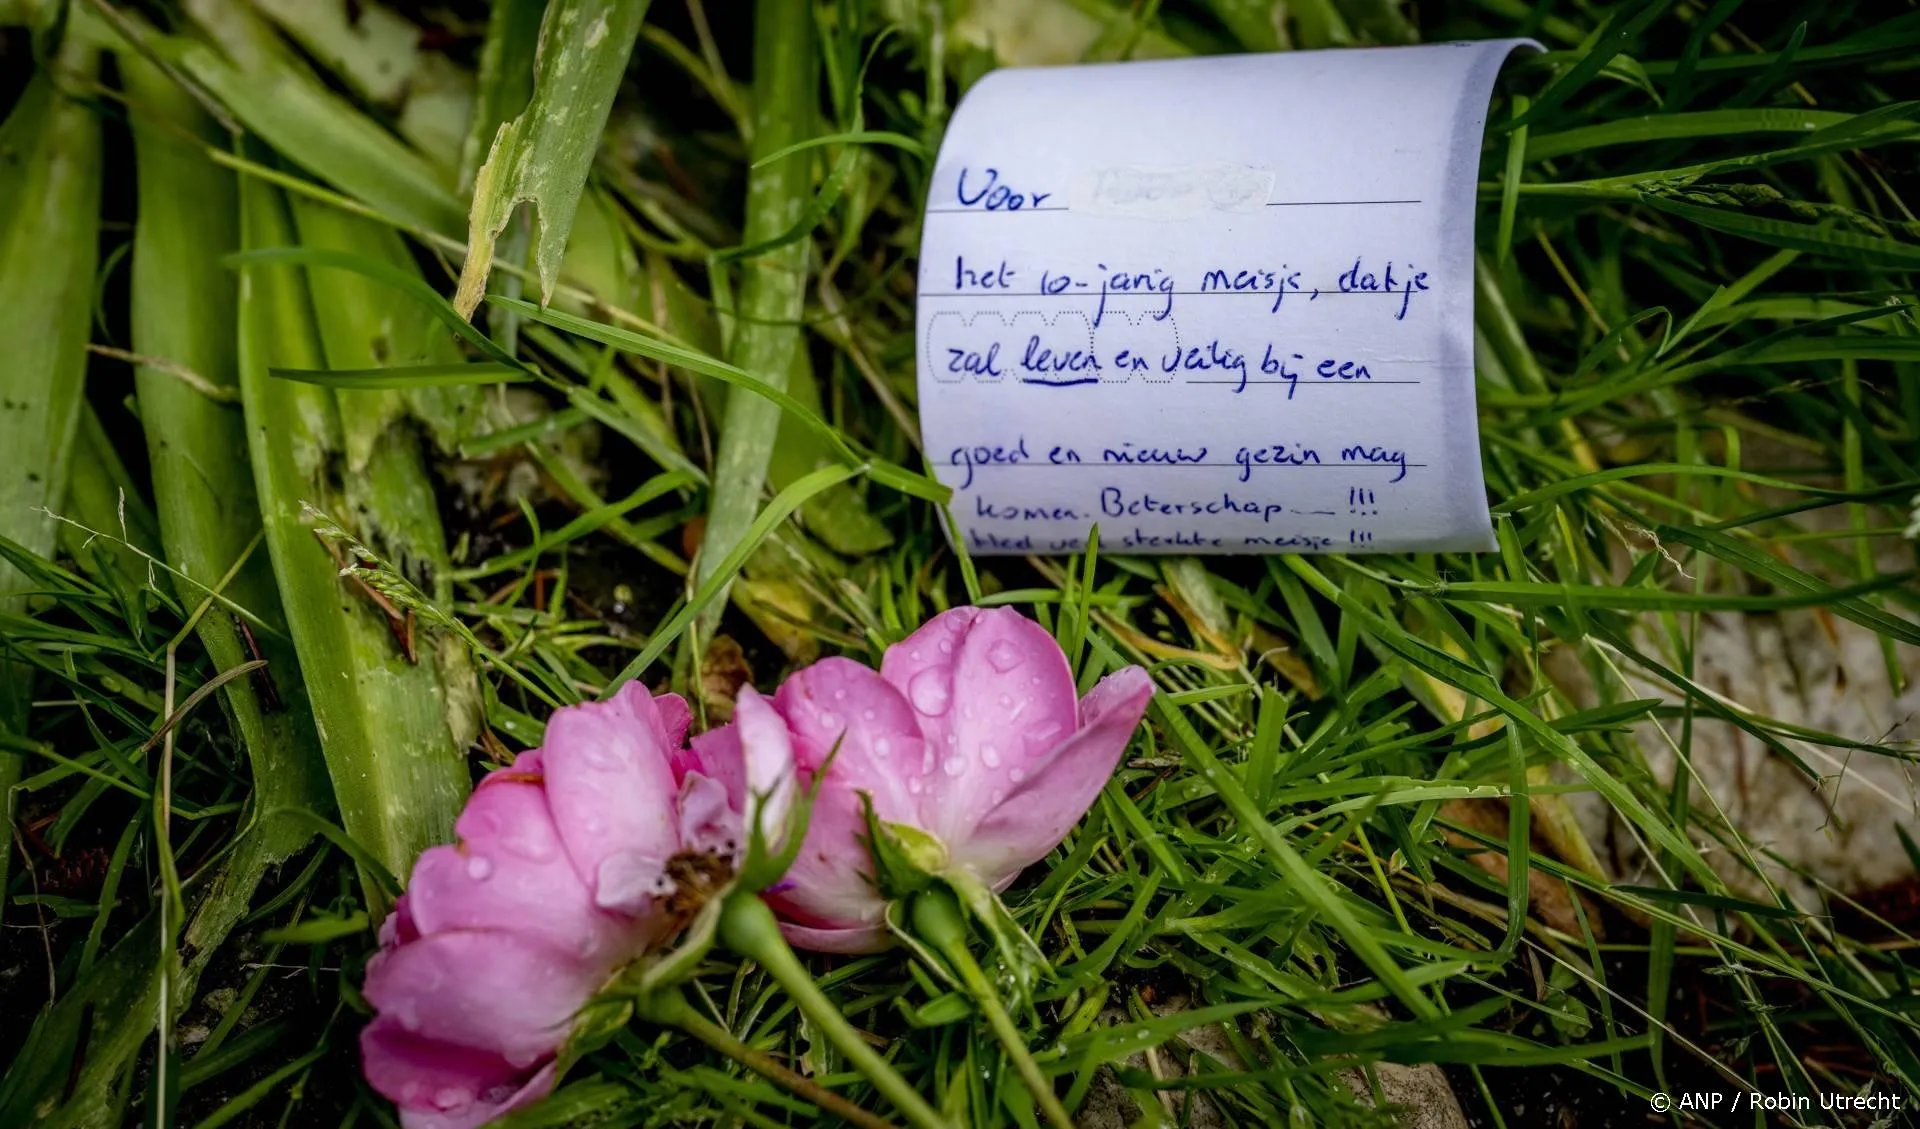 Voor
het 10-jarig meisje, dat je
zal leven en veilig bij een
goed en nieuw gezin mag
komen. Beterschap — !!!
Heel veel sterkte meisje !!!
© ANP / Robin Utrecht